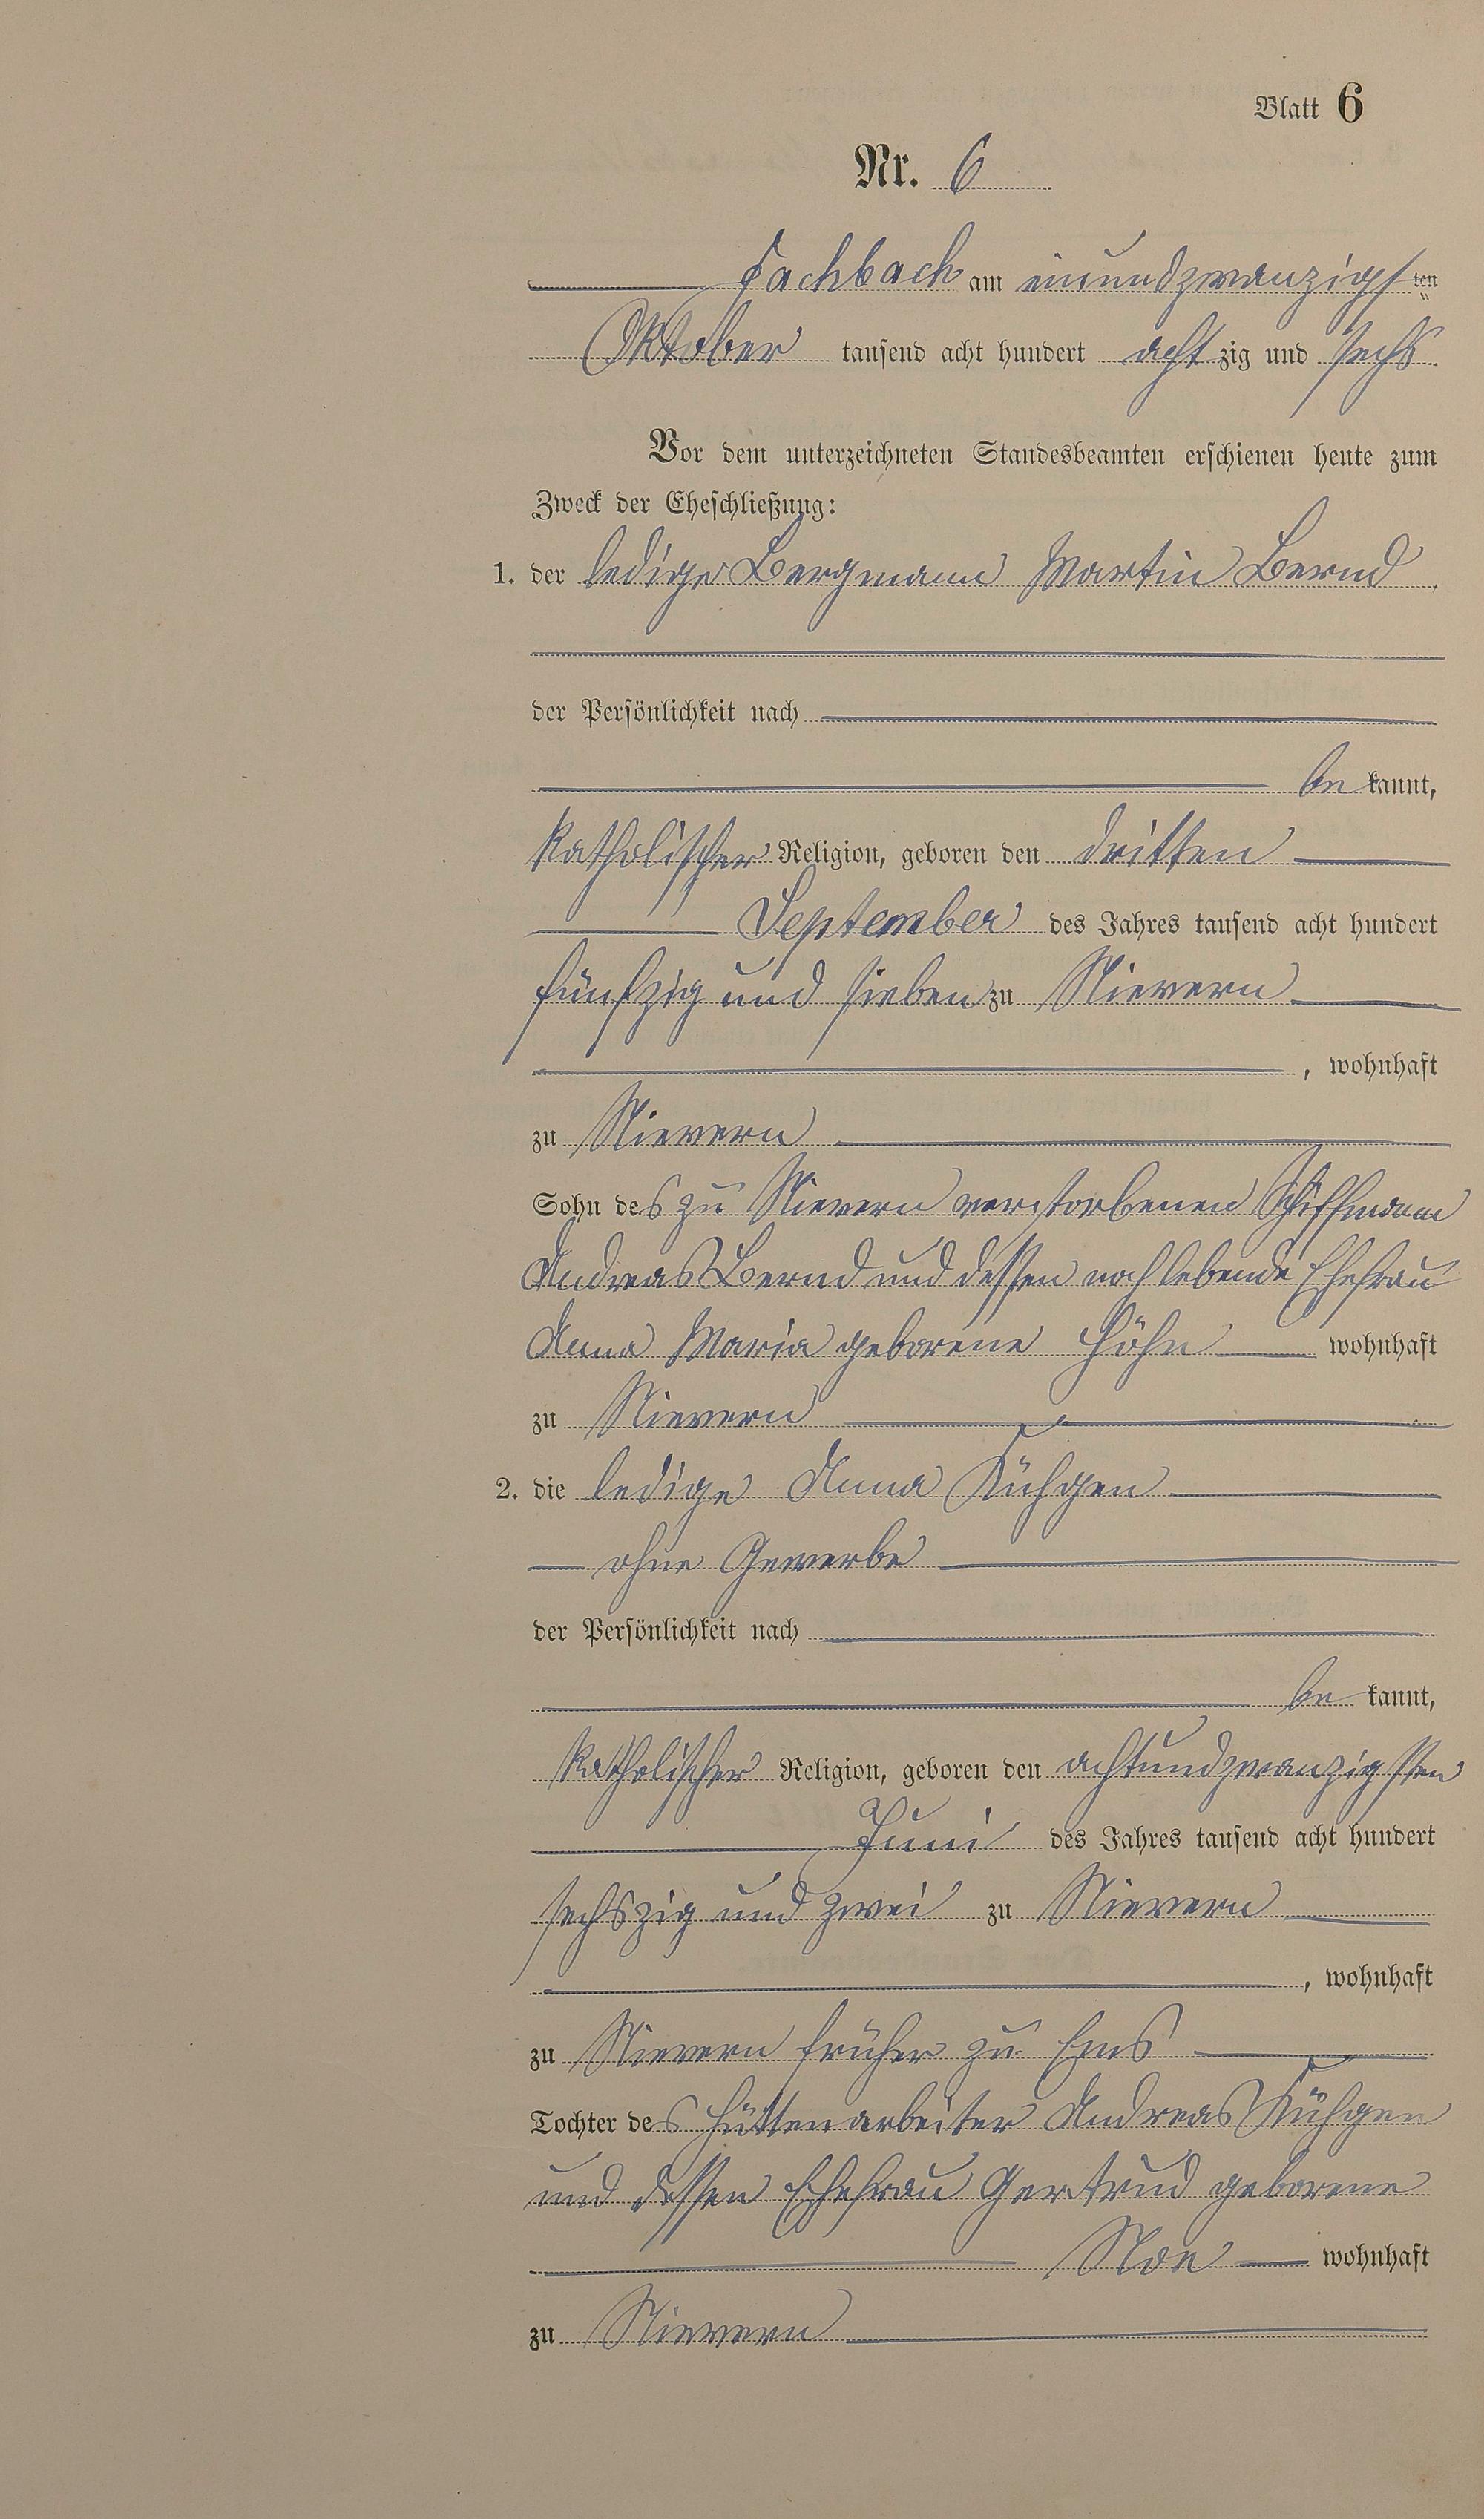 Blatt 6
Nr. 6
Fachbach am einundzwanzigsten
Oktober tausend acht hundert achtzig und sechs
Vor dem unterzeichneten Standesbeamten erschienen heute zum
Zweck der Eheschließung:
1. der ledige Bergmann Martin Bernd
der Persönlichkeit nach
bekannt,
katholischer Religion, geboren den dritten
September des Jahres tausend acht hundert
fünfzig und sieben zu Nievern
, wohnhaft
zu Nievern
Sohn des zu Nievern verstorbenen Schiffmann
Andreas Bernd und dessen noch lebende Ehefrau
Anna Maria geborene Höhn wohnhaft
zu Nievern
2. die ledige Anna Kühgen
ohne Gewerbe
der Persönlichkeit nach
bekannt,
katholischer Religion, geboren den achtundzwanzigsten
Juni des Jahres tausend acht hundert
sechszig und zwei zu Nievern
, wohnhaft
zu Nievern früher zu Ems
Tochter des Hüttenarbeiter Andreas Kühgen
und dessen Ehefrau Gertrud geborene
Noe wohnhaft
zu Nievern